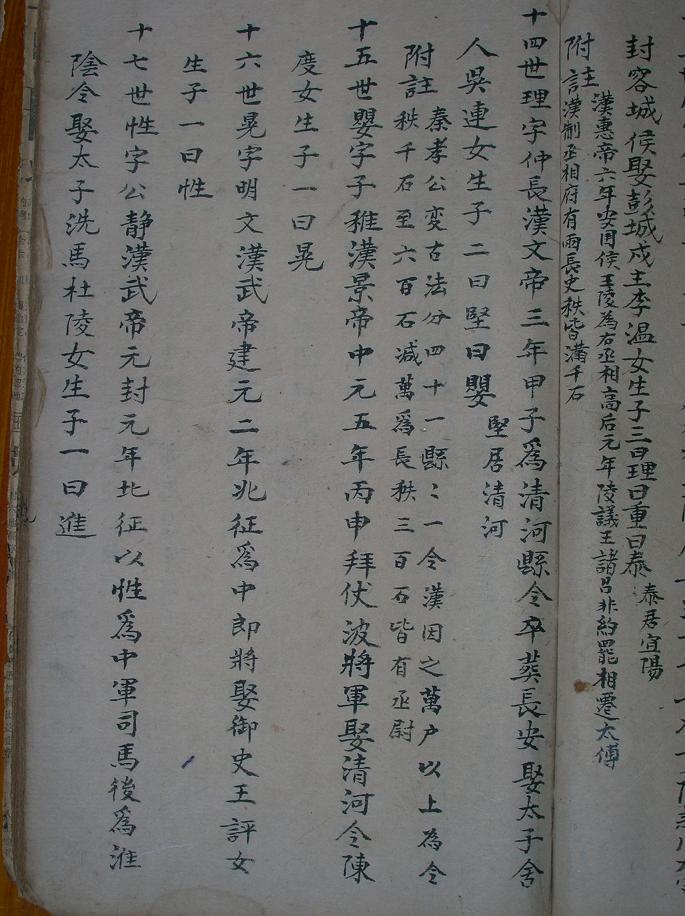 封容城侯娶彭城戍主李温女生子三曰理曰重曰泰 泰居宜陽
附註 漢惠帝六年安国侯王陵為右丞相高后元年陵議王諸呂非約罷相遷太傅
漢制丞相府有兩長史秩皆滿千石
十四世理字仲長漢文帝三年甲子為清河縣令卒葬長安娶太子舍
人吳連女生子二曰堅曰嬰 堅居清河
附註 秦孝公变古法分四十一縣〻一令漢因之萬户以上為令
秩千石至六百石减萬爲長秩三百石皆有丞尉
十五世嬰字子稚漢景帝中元五年丙申拜伏波將軍娶清河令陳
度女生子一曰晃
十六世晃字明文漢武帝建元二年北征爲中郎將娶御史王評女
生子一曰性
十七世性字公静漢武帝元封元年北征以性爲中軍司馬後爲淮
陰令娶太子洗馬杜陵女生子一曰進